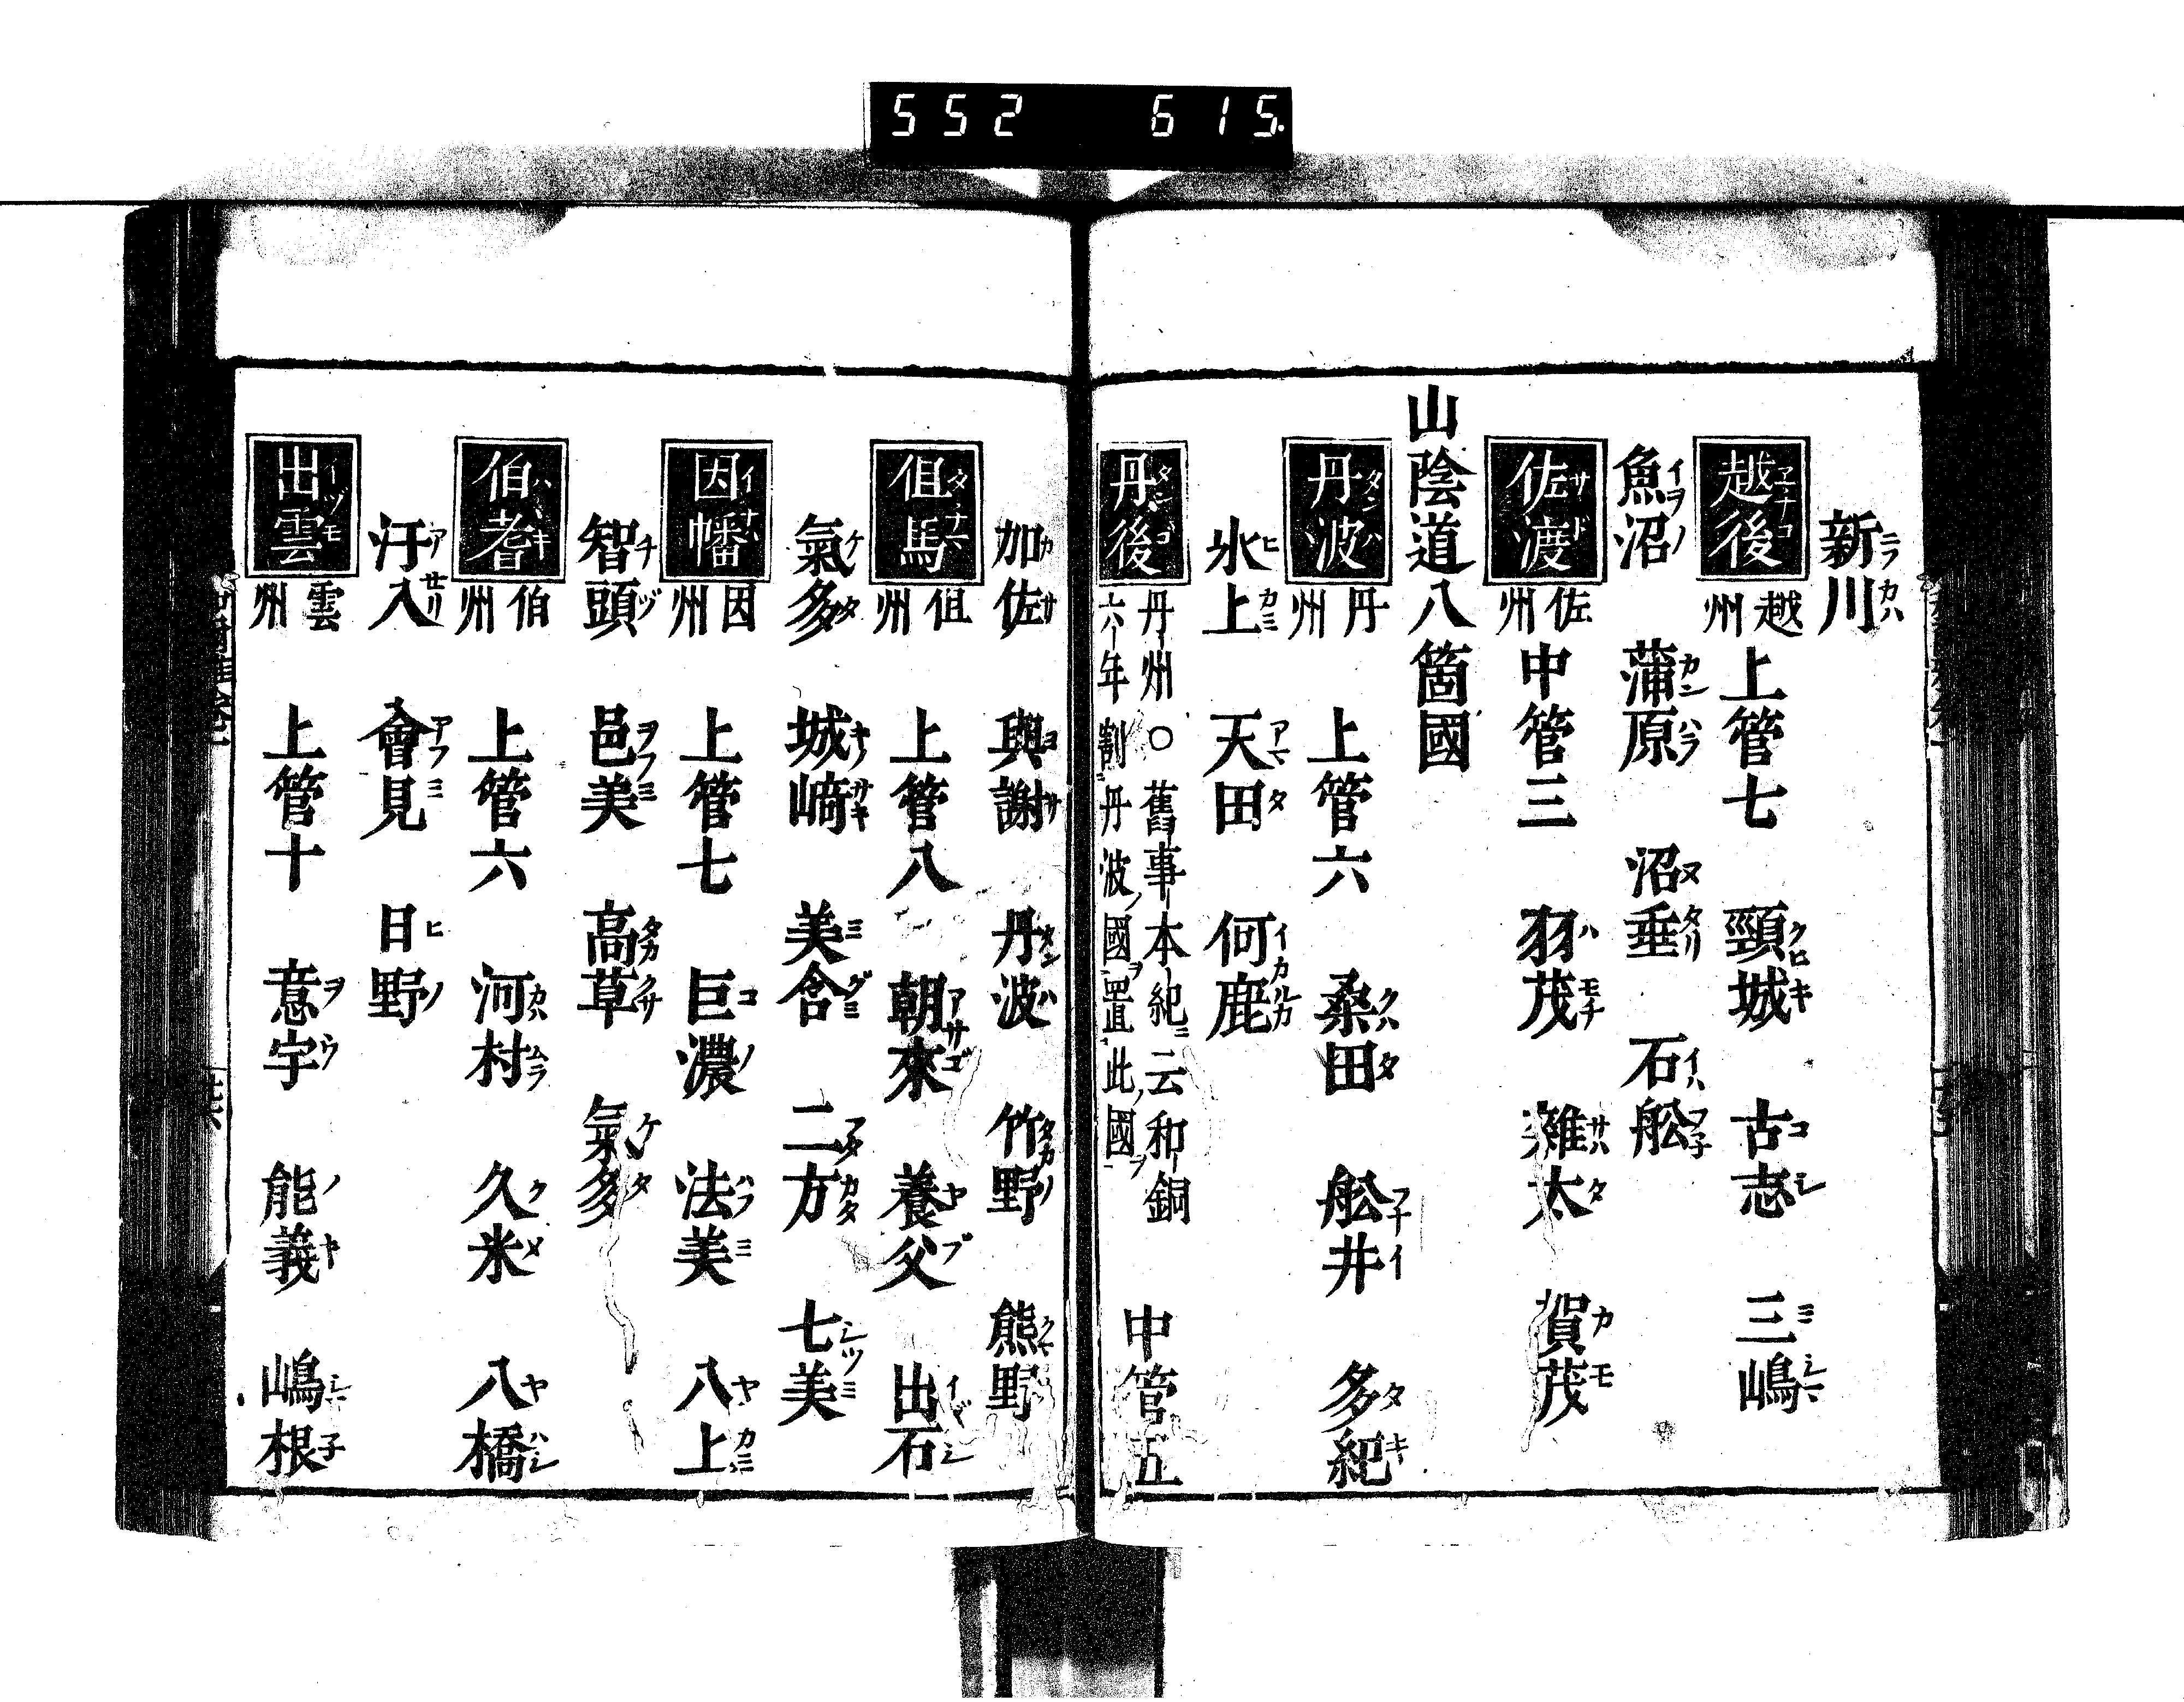 552 615.
新川
越後 越州 上管七 頸城 古志 三嶋
魚沼 蒲原 沼垂 石舩
佐渡 佐州 中管三 羽茂 雜太 賀茂
山陰道八箇國
丹波 丹州 上管六 桑田 舩井 多紀
氷上 天田 何鹿
丹後 丹州○舊事本紀ニ云和銅六年割丹波ノ國ヲ置此ノ國ヲ 中管五
加佐 與謝 丹波 竹野 熊野
但馬 但州 上管八 朝來 養父 出石
氣多 城﨑 美含 二方 七美
因幡 因州 上管七 巨濃 法美 八上
智頭 邑美 高草 氣多
伯耆 伯州 上管六 河村 久米 八橋
汗入 會見 日野
出雲 雲州 上管十 意宇 能義 嶋根